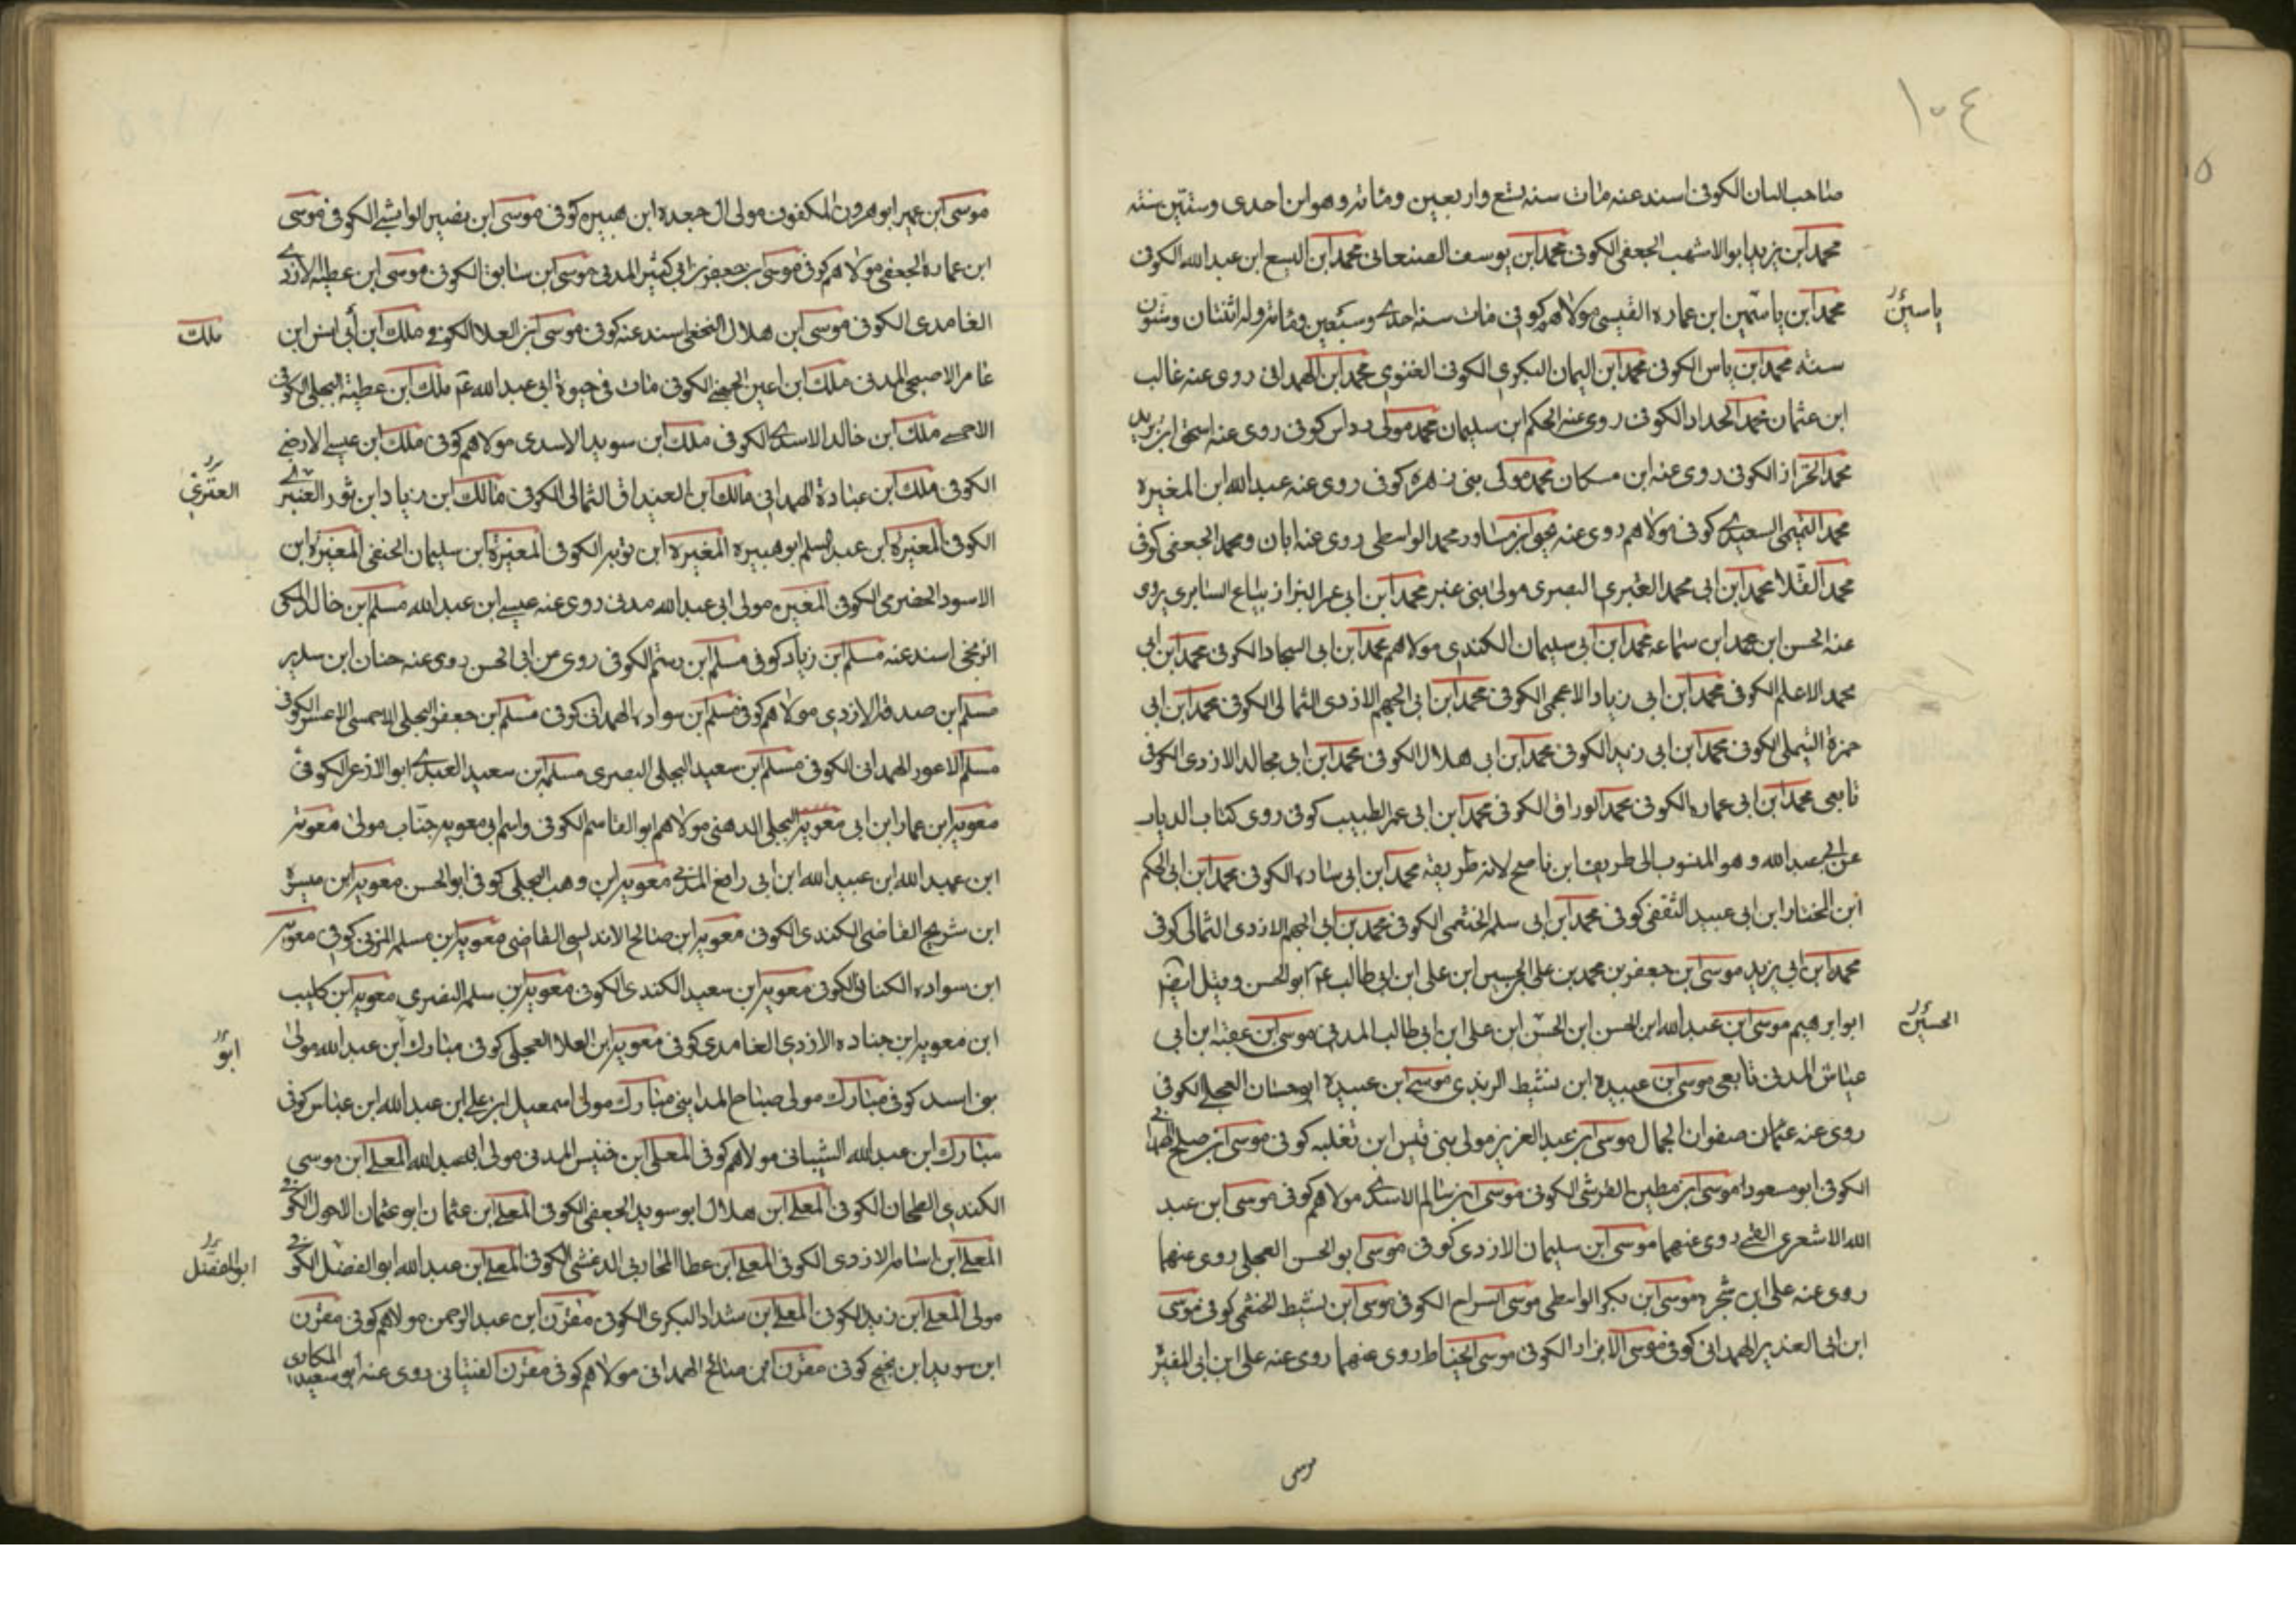 ١٠٤
صاحب اللسان الكوفى اسند عنه مات سنه تسع واربعين ومائة وهو ابن احدى وستين سنه
محمد ابن يزيد ابو الاشهب الجعفى الكوفى محمد ابن يوسف الصنعانى محمد ابن اليسع ابن عبد الله الكوفى
محمد ابن ياسين ابن عماره القيسى مولاهم كوفى مات سنه احدى وسبعين ومائة وله اثنتان وستون
ياسين
سنه محمد ابن ياس الكوفى محمد ابن اليمان البكرى الكوفى الغنوى محمد ابن الهمدانى روى عنه غالب
ابن عثمان محمد الحداد الكوفى روى عنه الحكم ابن سليمان محمد مولى رداس كوفى روى عنه اسحق ابن يزيد
محمد الخزاز الكوفى روى عنه ابن مسكان محمد مولى بنى زهره كوفى روى عنه عبد الله ابن المغيره
محمد التميمى السعيدى كوفى مولاهم روى عنه يحيى ابن مساور محمد الواسطى روى عنه ابان ومحمد الجعفى كوفى
محمد القلا محمد ابن ابى محمد العنبرى البصرى مولى بنى عنبر محمد ابن ابى عمر البزاز بياع السابرى يروى
عنه الحسن ابن محمد ابن سماعه محمد ابن ابى سليمان الكندى مولاهم محمد ابن ابى السجاد الكوفى محمد ابن ابى
محمد الاعلم الكوفى محمد ابن ابى زياد الاعجمى الكوفى محمد ابن ابى الجهم الازدى الثمالى الكوفى محمد ابن ابى
حمزة التيملى الكوفى محمد ابن ابى زيد الكوفى محمد ابن ابى هلال الكوفى محمد ابن ابى مجالد الازدى الكوفى
تابعى محمد ابن ابى عماره الكوفى محمد الوراق الكوفى محمد ابن ابى عمر الطبيب كوفى روى كتاب الديات
عن ابى عبد الله وهو المنسوب الى طريف ابن ناصح لانه طريقه محمد ابن ابى ساره الكوفى محمد ابن ابى الحكم
ابن المختار ابن ابى عبيد الثقفى كوفى محمد ابن ابى سلمه الخثعمى الكوفى محمد بن ابى الجهم الازدى الثمالى كوفى
محمد ابن ابى يزيد موسى ابن جعفر بن محمد بن على الحسين ابن على ابن ابى طالب ع م ابو الحسن وقيل ايضم
ابو ابرهيم موسى ابن عبد الله ابن الحسن ابن الحسن ابن على ابن ابى طالب المدنى موسى ابن عقبه ابن ابى
الحسين
عياش المدنى تابعى موسى ابن عبيده ابن نشيط الربذى موسى ابن عبيدة ابو حسان العجلى الكوفى
روى عنه عثمان صفوان الجمال موسى ابن عبد العزيز مولى بنى قيس ابن ثعلبه كوفى موسى ابن صبيح
الكوفى ابو مسعود موسى ابن مطين القرشى الكوفى موسى ابن سالم الاسدى مولاهم كوفى موسى ابن عبد
الله الاشعرى القمى روى عنهما موسى ابن سليمان الازدى كوفى موسى ابو الحسن العجلى روى عنهما
روى عنه على ابن شجره موسى ابن بكر الواسطى موسى السراج الكوفى موسى ابن نشيط الخثعمى كوفى موسى
ابن ابى الغدير الهمدانى كوفى موسى الابزار الكوفى موسى الحناط روى عنهما روى عنه على ابن ابى المغيره
موسى
موسى ابن عمير ابو هرون المكفوف مولى ال جعده ابن هبيره كوفى موسى ابن نصير الوابشى الكوفى موسى
ابن عماره الجعفى مولاهم كوفى موسى بن جعفر بن ابى كثير المدنى موسى ابن سابق الكوفى موسى ابن عطيه الازدى
الغامدى الكوفى موسى ابن هلال النخعى اسند عنه كوفى موسى ابن العلا الكوفى وملك ابن أبى انس ابن
ملك
عامر الاصبحى المدنى ملك ابن اعين الجهنى الكوفى مات فى حيوة ابى عبد الله ع م ملك ابن عطيه البجلى الكوفى
الاحمسى ملك ابن خالد الاسدى الكوفى ملك ابن سويد الاسدى مولاهم كوفى ملك ابن عيسى الارضى
الكوفى ملك ابن عبادة الهمدانى مالك ابن العيداق الثمالى الكوفى مالك ابن زياد ابن ثور العنبرى
العنزى
الكوفى المغيرة ابن عبد السلم ابو هبيره المغيره ابن توبه الكوفى المغيرة ابن سليمان الحنفى المغيره ابن
الاسود الحضرمى الكوفى المغيره مولى ابى عبد الله مدنى روى عنه عيسى ابن عبد الله مسلم ابن خالد المكى
الزنجى اسند عنه مسلم ابن زياد كوفى مسلم ابن رستم الكوفى روى من ابى الحسن روى عنه حنان ابن سدير
مسلم ابن صدقه الازدى مولاهم كوفى مسلم ابن سواده الهمدانى كوفى مسلم ابن جعفر البجلى الاحمسى الاعسر الكوفى
مسلم الاعور الهمدانى الكوفى مسلم ابن سعيد البجلى البصرى مسلمه ابن سعيد العبدى ابو الاذعر الكوفى
معويه ابن عمار ابن ابى معويه البجلى الدهنى مولاهم ابو القاسم الكوفى واسم ابى معويه خباب مولى معويه
ابن عبد الله ابن عبيد الله ابن ابى رافع المدنى معويه ابن وهب البجلى كوفى ابو الحسن معويه ابن ميسره
ابن شريح القاضى الكندى الكوفى معويه ابن صالح الاندلسى القاضى معويه ابن مسلمه المزنى كوفى معويه
ابن سواده الكنانى الكوفى معويه ابن سعيد الكندى الكوفى معويه ابن سلمه النصرى معويه ابن كليب
ابن معويه ابن جناده الازدى الغامدى كوفى معويه ابن العلا العجلى كوفى مبارك ابن عبد الله مولى
ابو
بنى اسد كوفى مبارك مولى صباح المداينى مبارك مولى اسمعيل ابن على ابن عبد الله ابن عباس كوفى
مبارك ابن عبد الله الشيبانى مولاهم كوفى المعلى ابن خنيس المدنى مولى ابى عبد الله المعلى ابن موسى
الكندى الطحان الكوفى المعلى ابن هلال ابو سويد الجعفى الكوفى المعلى ابن عثمان ابو عثمان الاحول الكوفى
المعلى ابن اسامه الازدى الكوفى المعلى ابن عطا المحاربى الدغشى الكوفى المعلى ابن عبد الله ابو الفضل الكوفى
ابو المفضل
مولى المعلى ابن زيد الكوفى المعلى ابن شداد البكرى الكوفى مقرن ابن عبد الرحمن مولاهم كوفى مقرن
ابن سويد ابن نجيح كوفى مقرن ابن صالح الهمدانى مولاهم كوفى مقرن الفتيانى روى عنه ابو سعيد المكارى